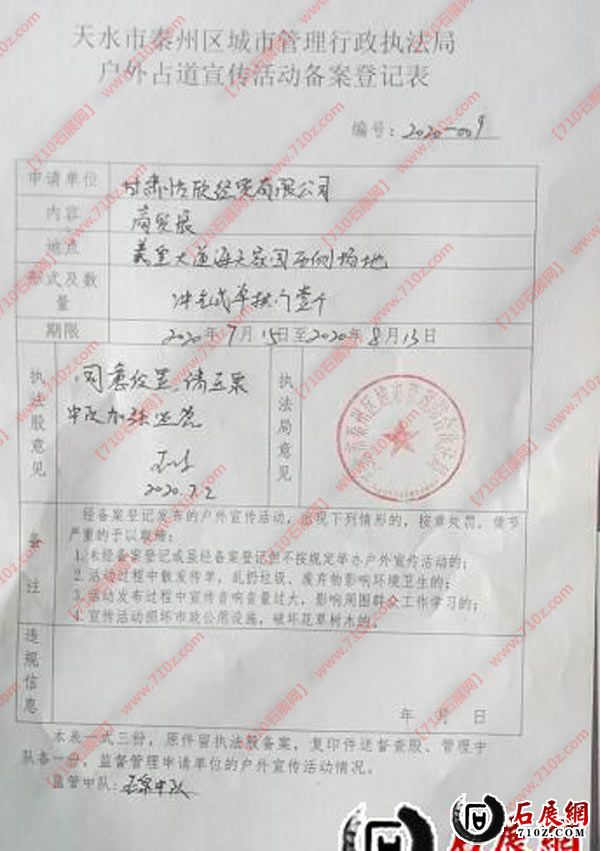 天水市秦州区城市管理行政执法局
户外占道宣传活动备案登记表
编号：2020-009
申请单位
甘肃浩欣经贸有限公司
内容
商贸展
地点
羲皇大道海天家园西侧场地
形式及数量
冲气式单拱门壹个
期限
2020年7月15日至2020年8月13日
执法股意见
同意设置，请玉泉
中队加强监管
2020.7.2
执法局意见
备注
经备案登记发布的户外宣传活动，出现下列情形的，按章处罚。情节
严重的予以取缔：
1.未经备案登记或虽经备案登记但不按规定举办户外宣传活动的；
2.活动过程中散发传单，乱扔垃圾、废弃物影响环境卫生的；
3.活动发布过程中宣传音响音量过大，影响周围群众工作学习的；
4.宣传活动损坏市政公用设施，破坏花草树木的。
违规信息
年 月 日
本表一式三份，原件留执法股备案，复印件送督查股、管理中
队各一份，监督管理申请单位的户外宣传活动情况。
监管中队：玉泉中队
【710石展网】
www.710z.com
石展網
710Z.COM